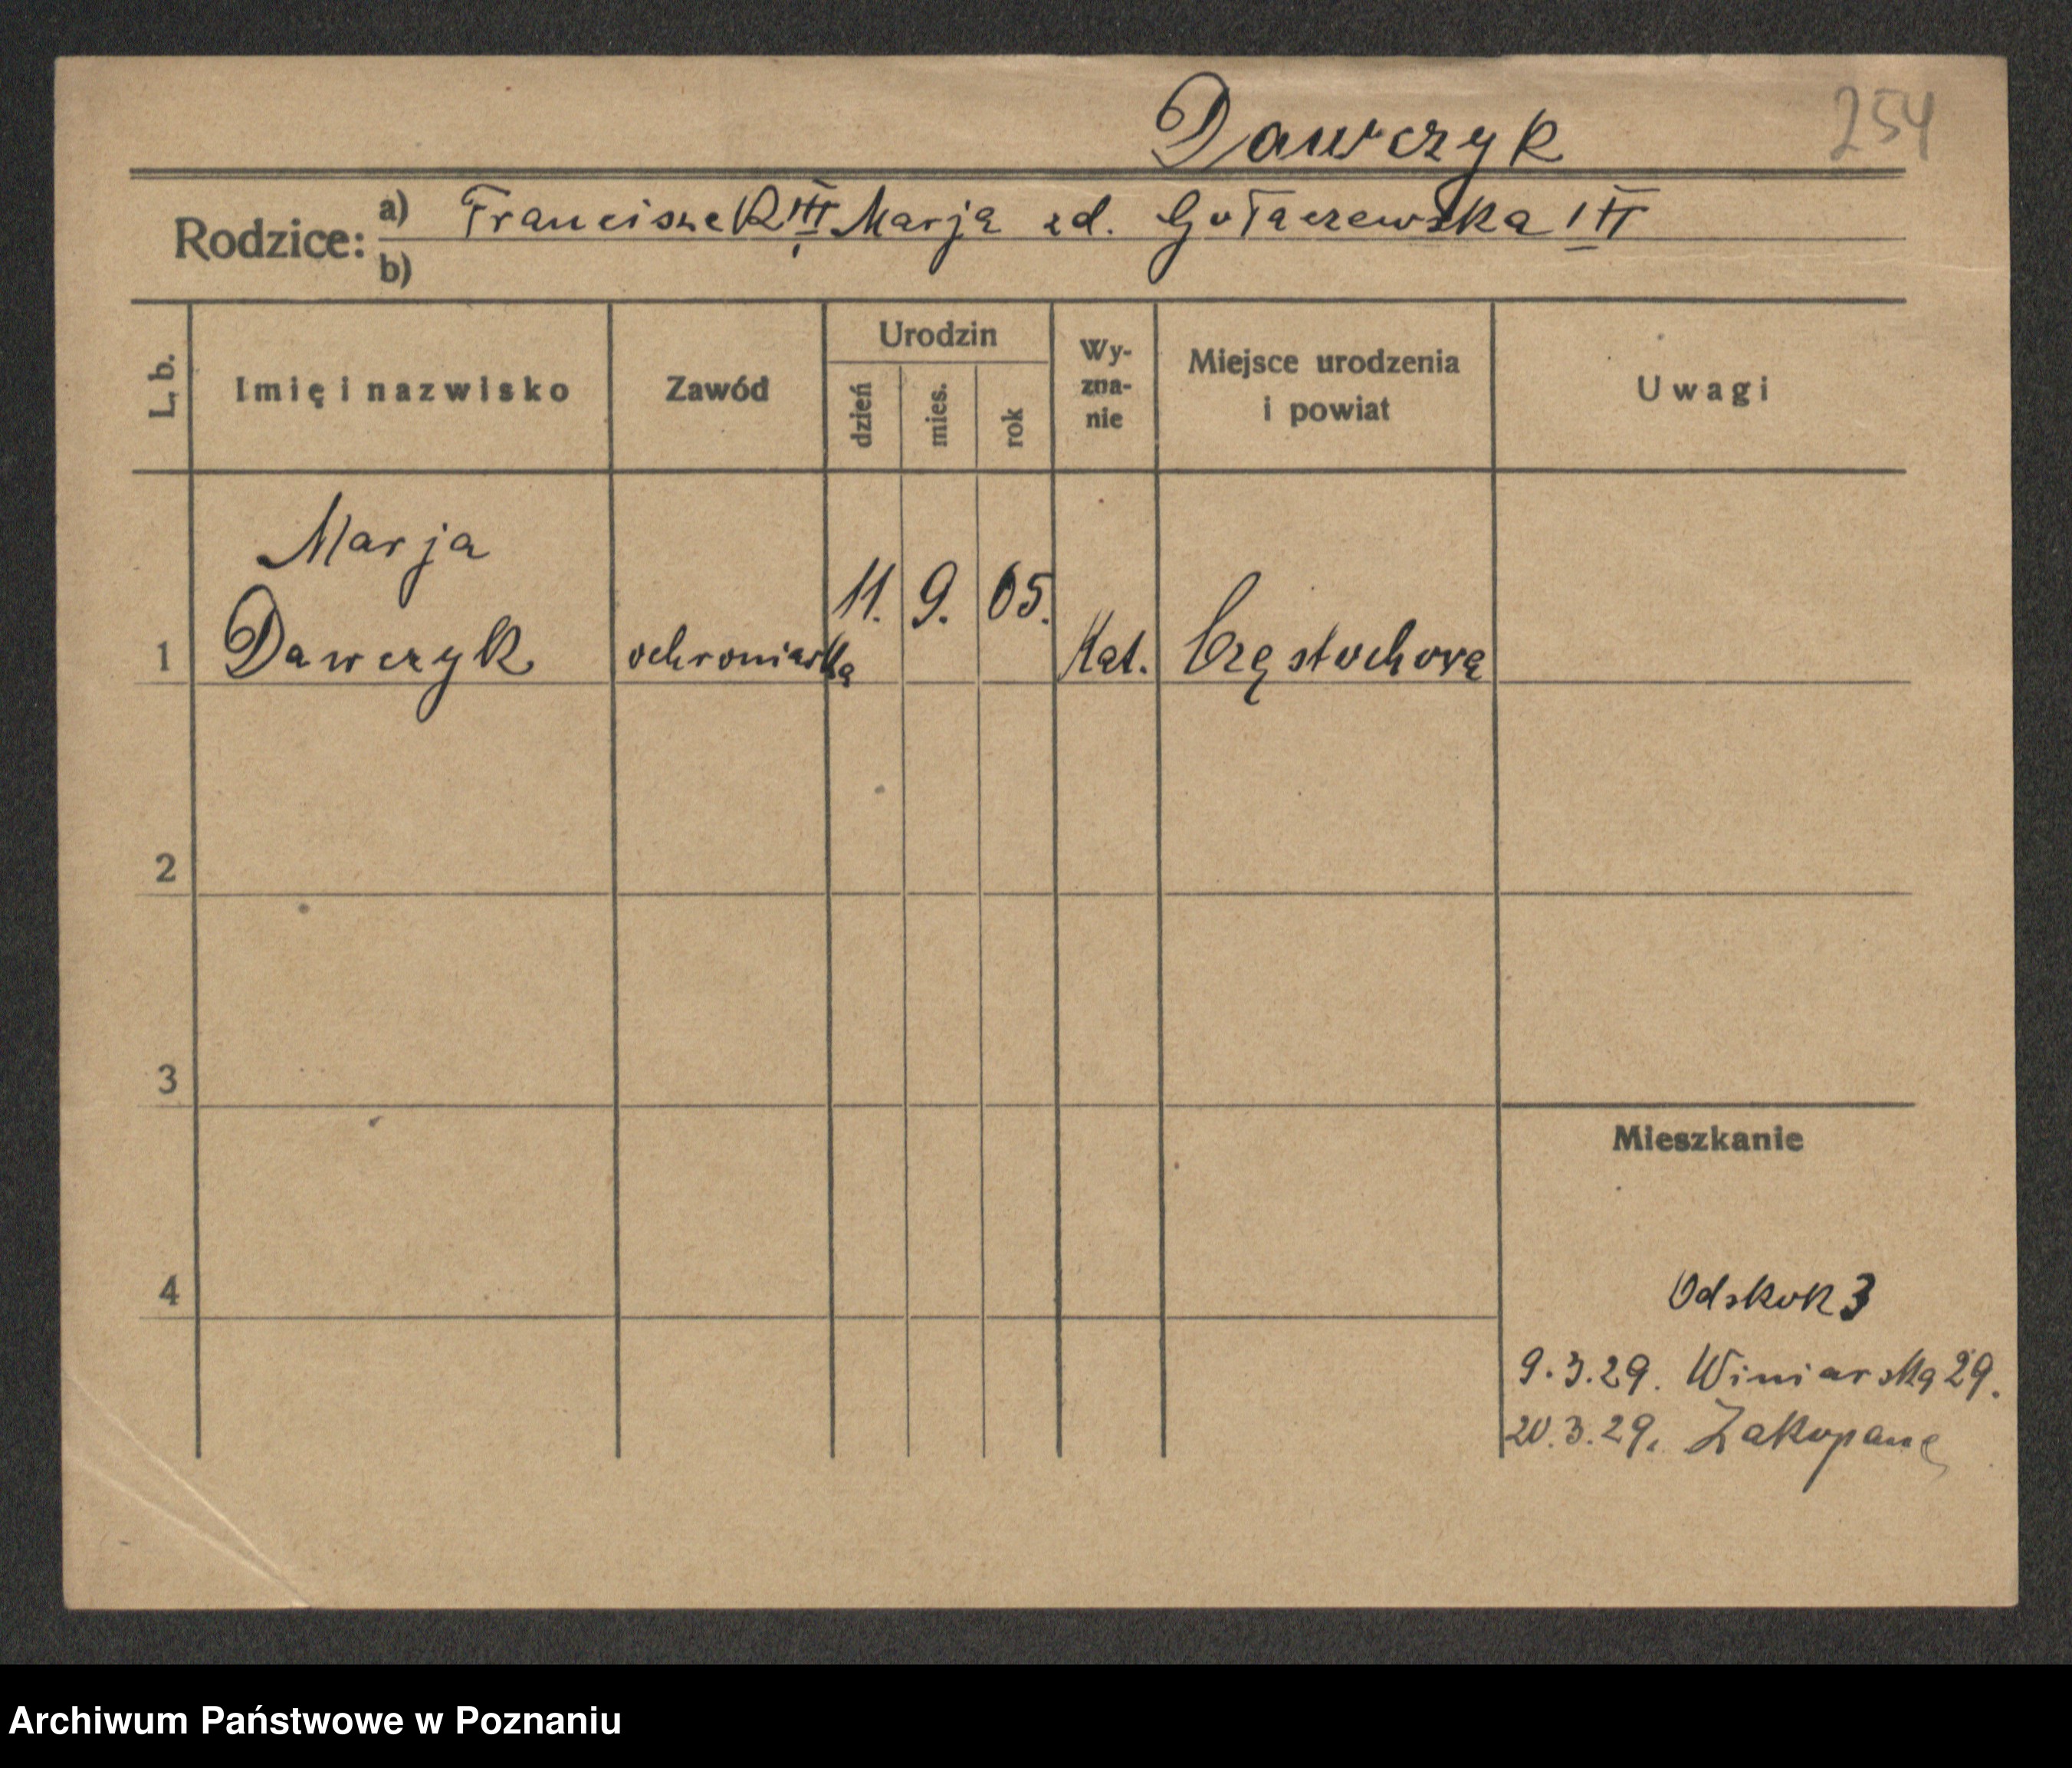 Dawczyk 254
Rodzice: a) Franciszek III Marja zd. Gołaczewska III
b)
L. b. Imię i nazwisko Zawód Urodzin dzień mies. rok Wy-zna-nie Miejsce urodzenia i powiat Uwagi
Marja
1 Dawczyk ochroniarka 11. 9. 05. Kat. Częstochowa
2
3
Mieszkanie
4 Odskok 3
9.3.29. Winiarska 29.
20.3.29. Zakopane
Archiwum Państwowe w Poznaniu